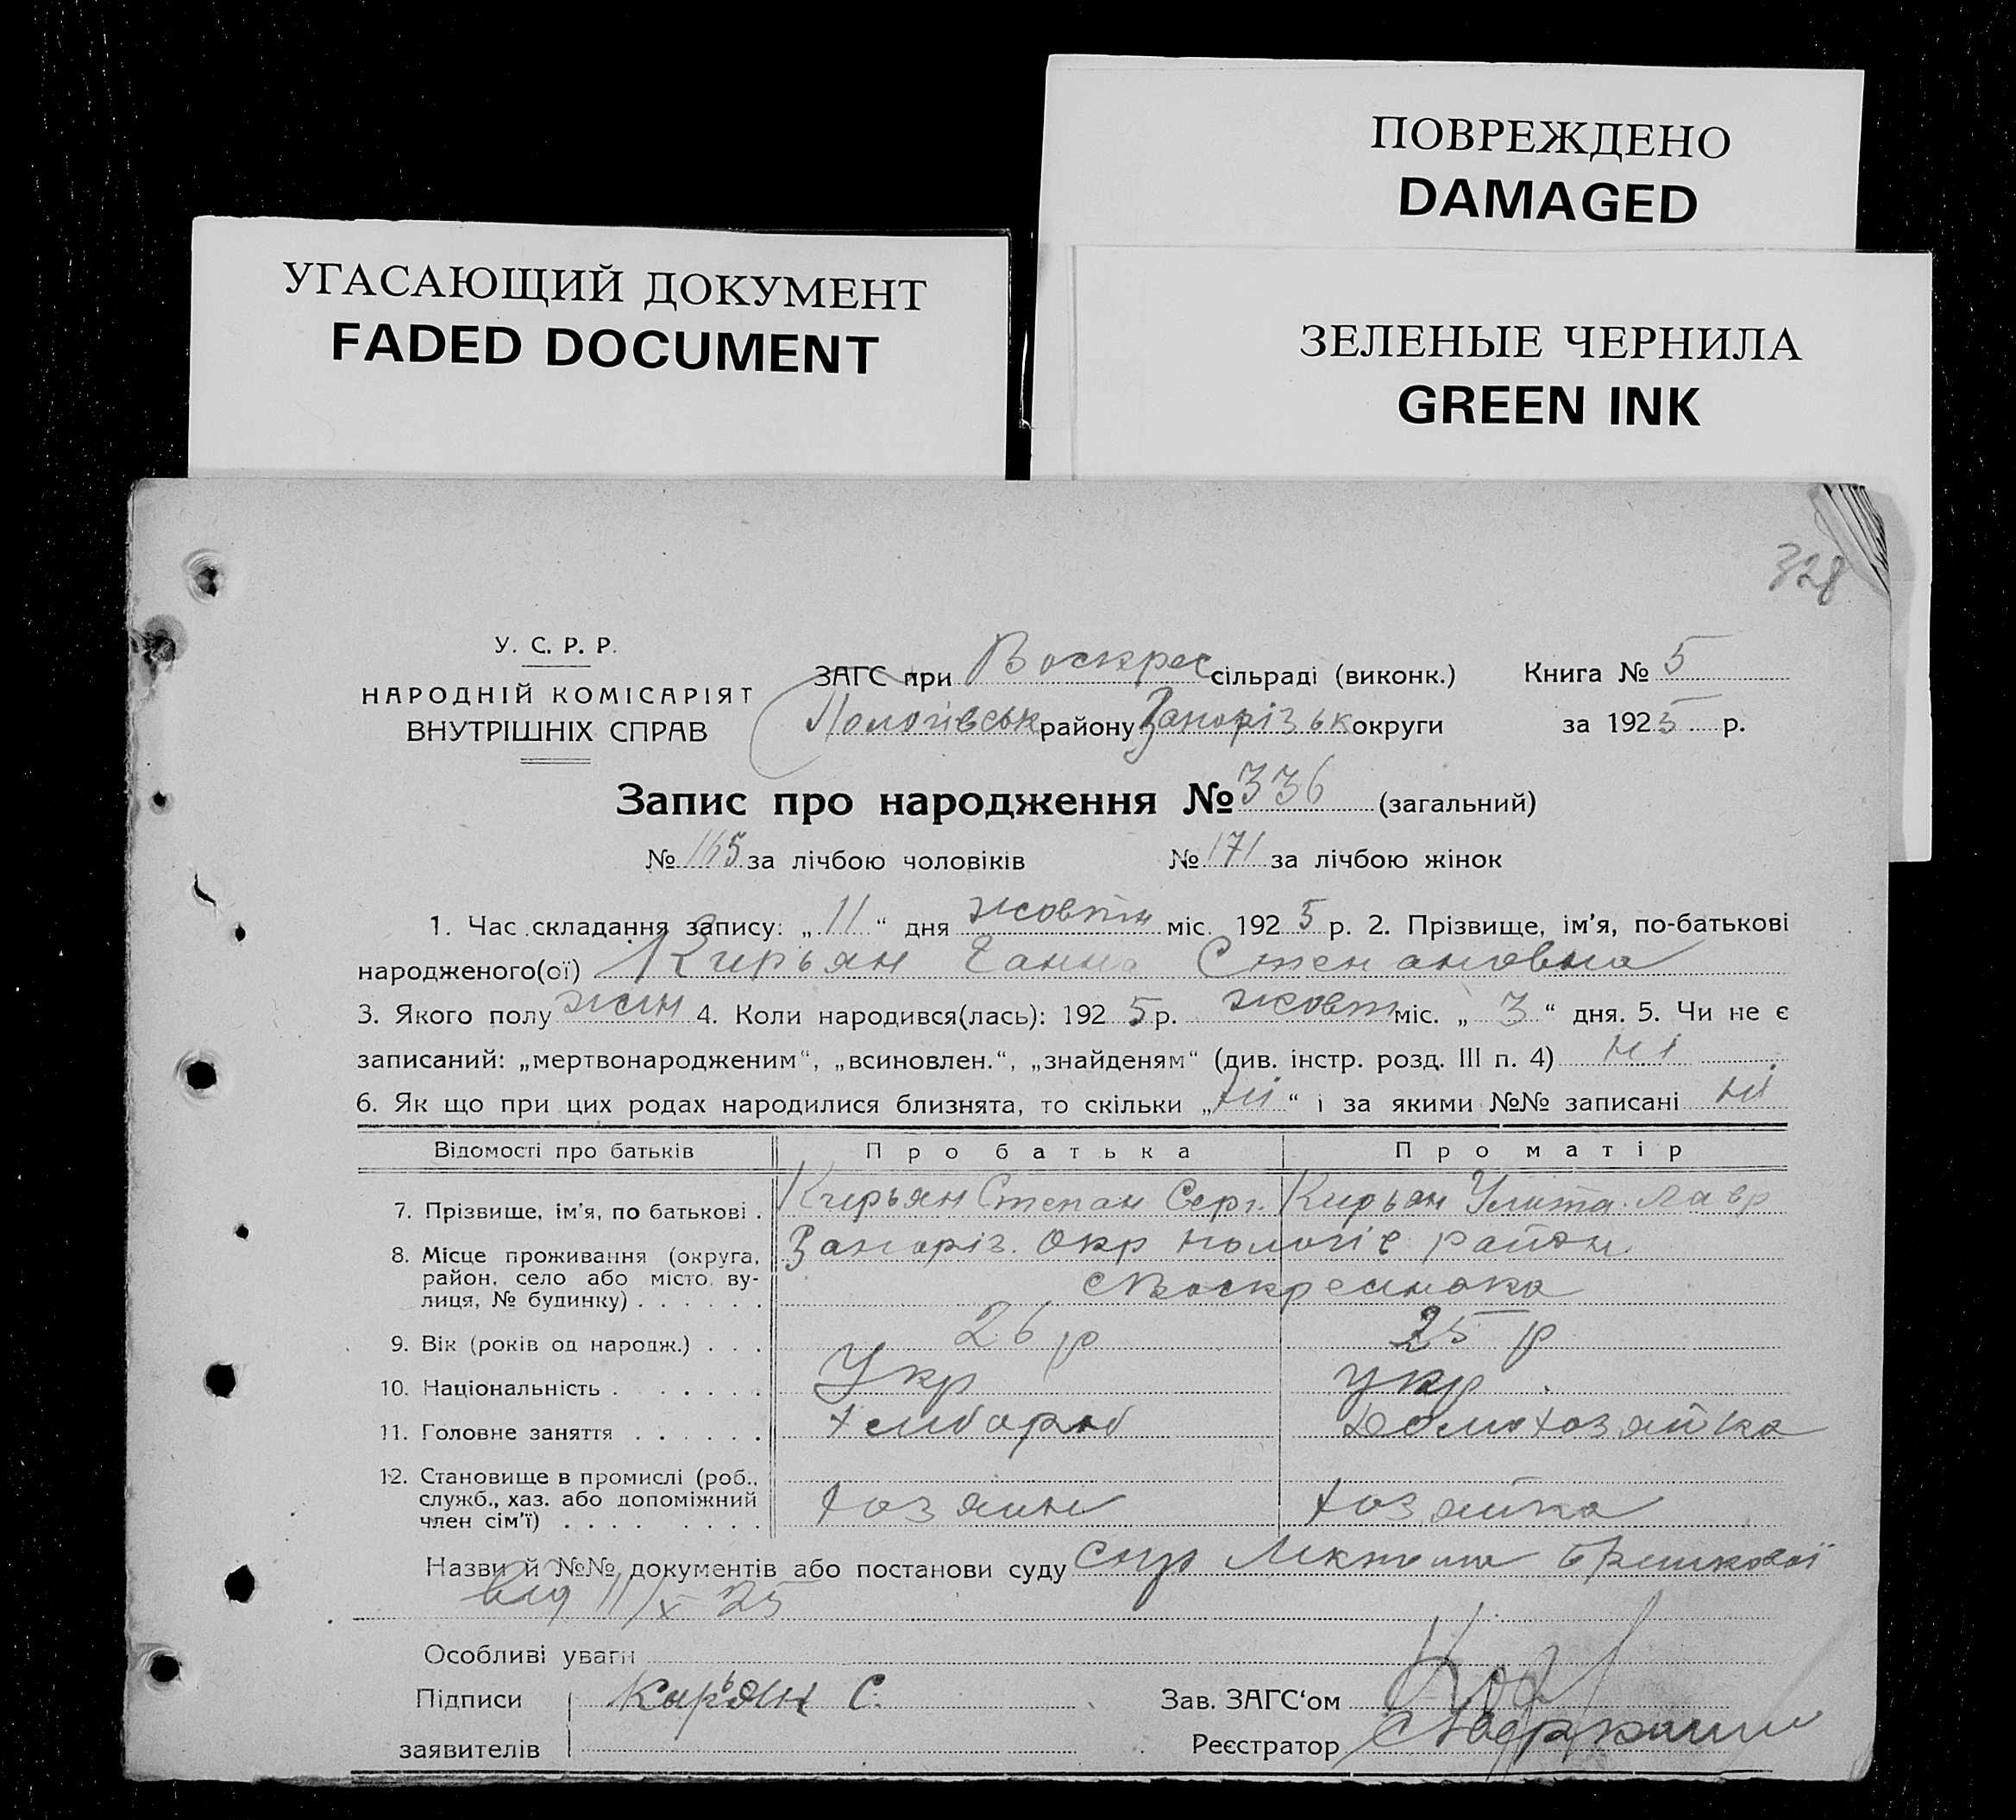 ПОВРЕЖДЕНО
DAMAGED
УГАСАЮЩИЙ ДОКУМЕНТ
FADED DOCUMENT
ЗЕЛЕНЫЕ ЧЕРНИЛА
GREEN INK
328
У. С. Р. Р.
НАРОДНІЙ КОМІСАРІЯТ
ВНУТРІШНІХ СПРАВ
ЗАГС при Воскрес сільраді (виконк.) Книга № 5
Пологівськ району Запорізьк округи за 1925 р.
Запис про народження № 336 (загальний)
№ 165 за лічбою чоловіків № 171 за лічбою жінок
1. Час складання запису: „11“ дня жовтн міс. 1925 р. 2. Прізвище, ім'я, по-батькові
народженого(ої) Кирьян Ганна Степановна
3. Якого полу жін 4. Коли народився(лась): 1925 р. жовт міс. „3“ дня. 5. Чи не є
записаний: „мертвонародженим“, „всиновлен.“, „знайденям“ (див. інстр. розд. III п. 4) ні
6. Як що при цих родах народилися близнята, то скільки „ні“ і за якими №№ записані ні
Відомості про батьків Про батька Про матір
7. Прізвище, ім'я, по батькові . Кирьян Степан Серг. Кирьян Улита Лавр
8. Місце проживання (округа, Запоріз. Окр Пологів район
район, село або місто, ву-
лиця, № будинку) . . . . . . с Воскресенока
9. Вік (років од народж.) . . . 26 р 25 р
10. Національність . . . . . . . Укр укр.
11. Головне заняття . . . . . . хлибороб Домохозяйка
12. Становище в промислі (роб.,
служб., хаз. або допоміжний хозяин хозяйка
член сім'ї) . . . . . . . . .
Назви й №№ документів або постанови суду
від 11/X 25
Особливі уваги
Підписи Кирьян С. Зав. ЗАГС'ом
заявителів Реєстратор